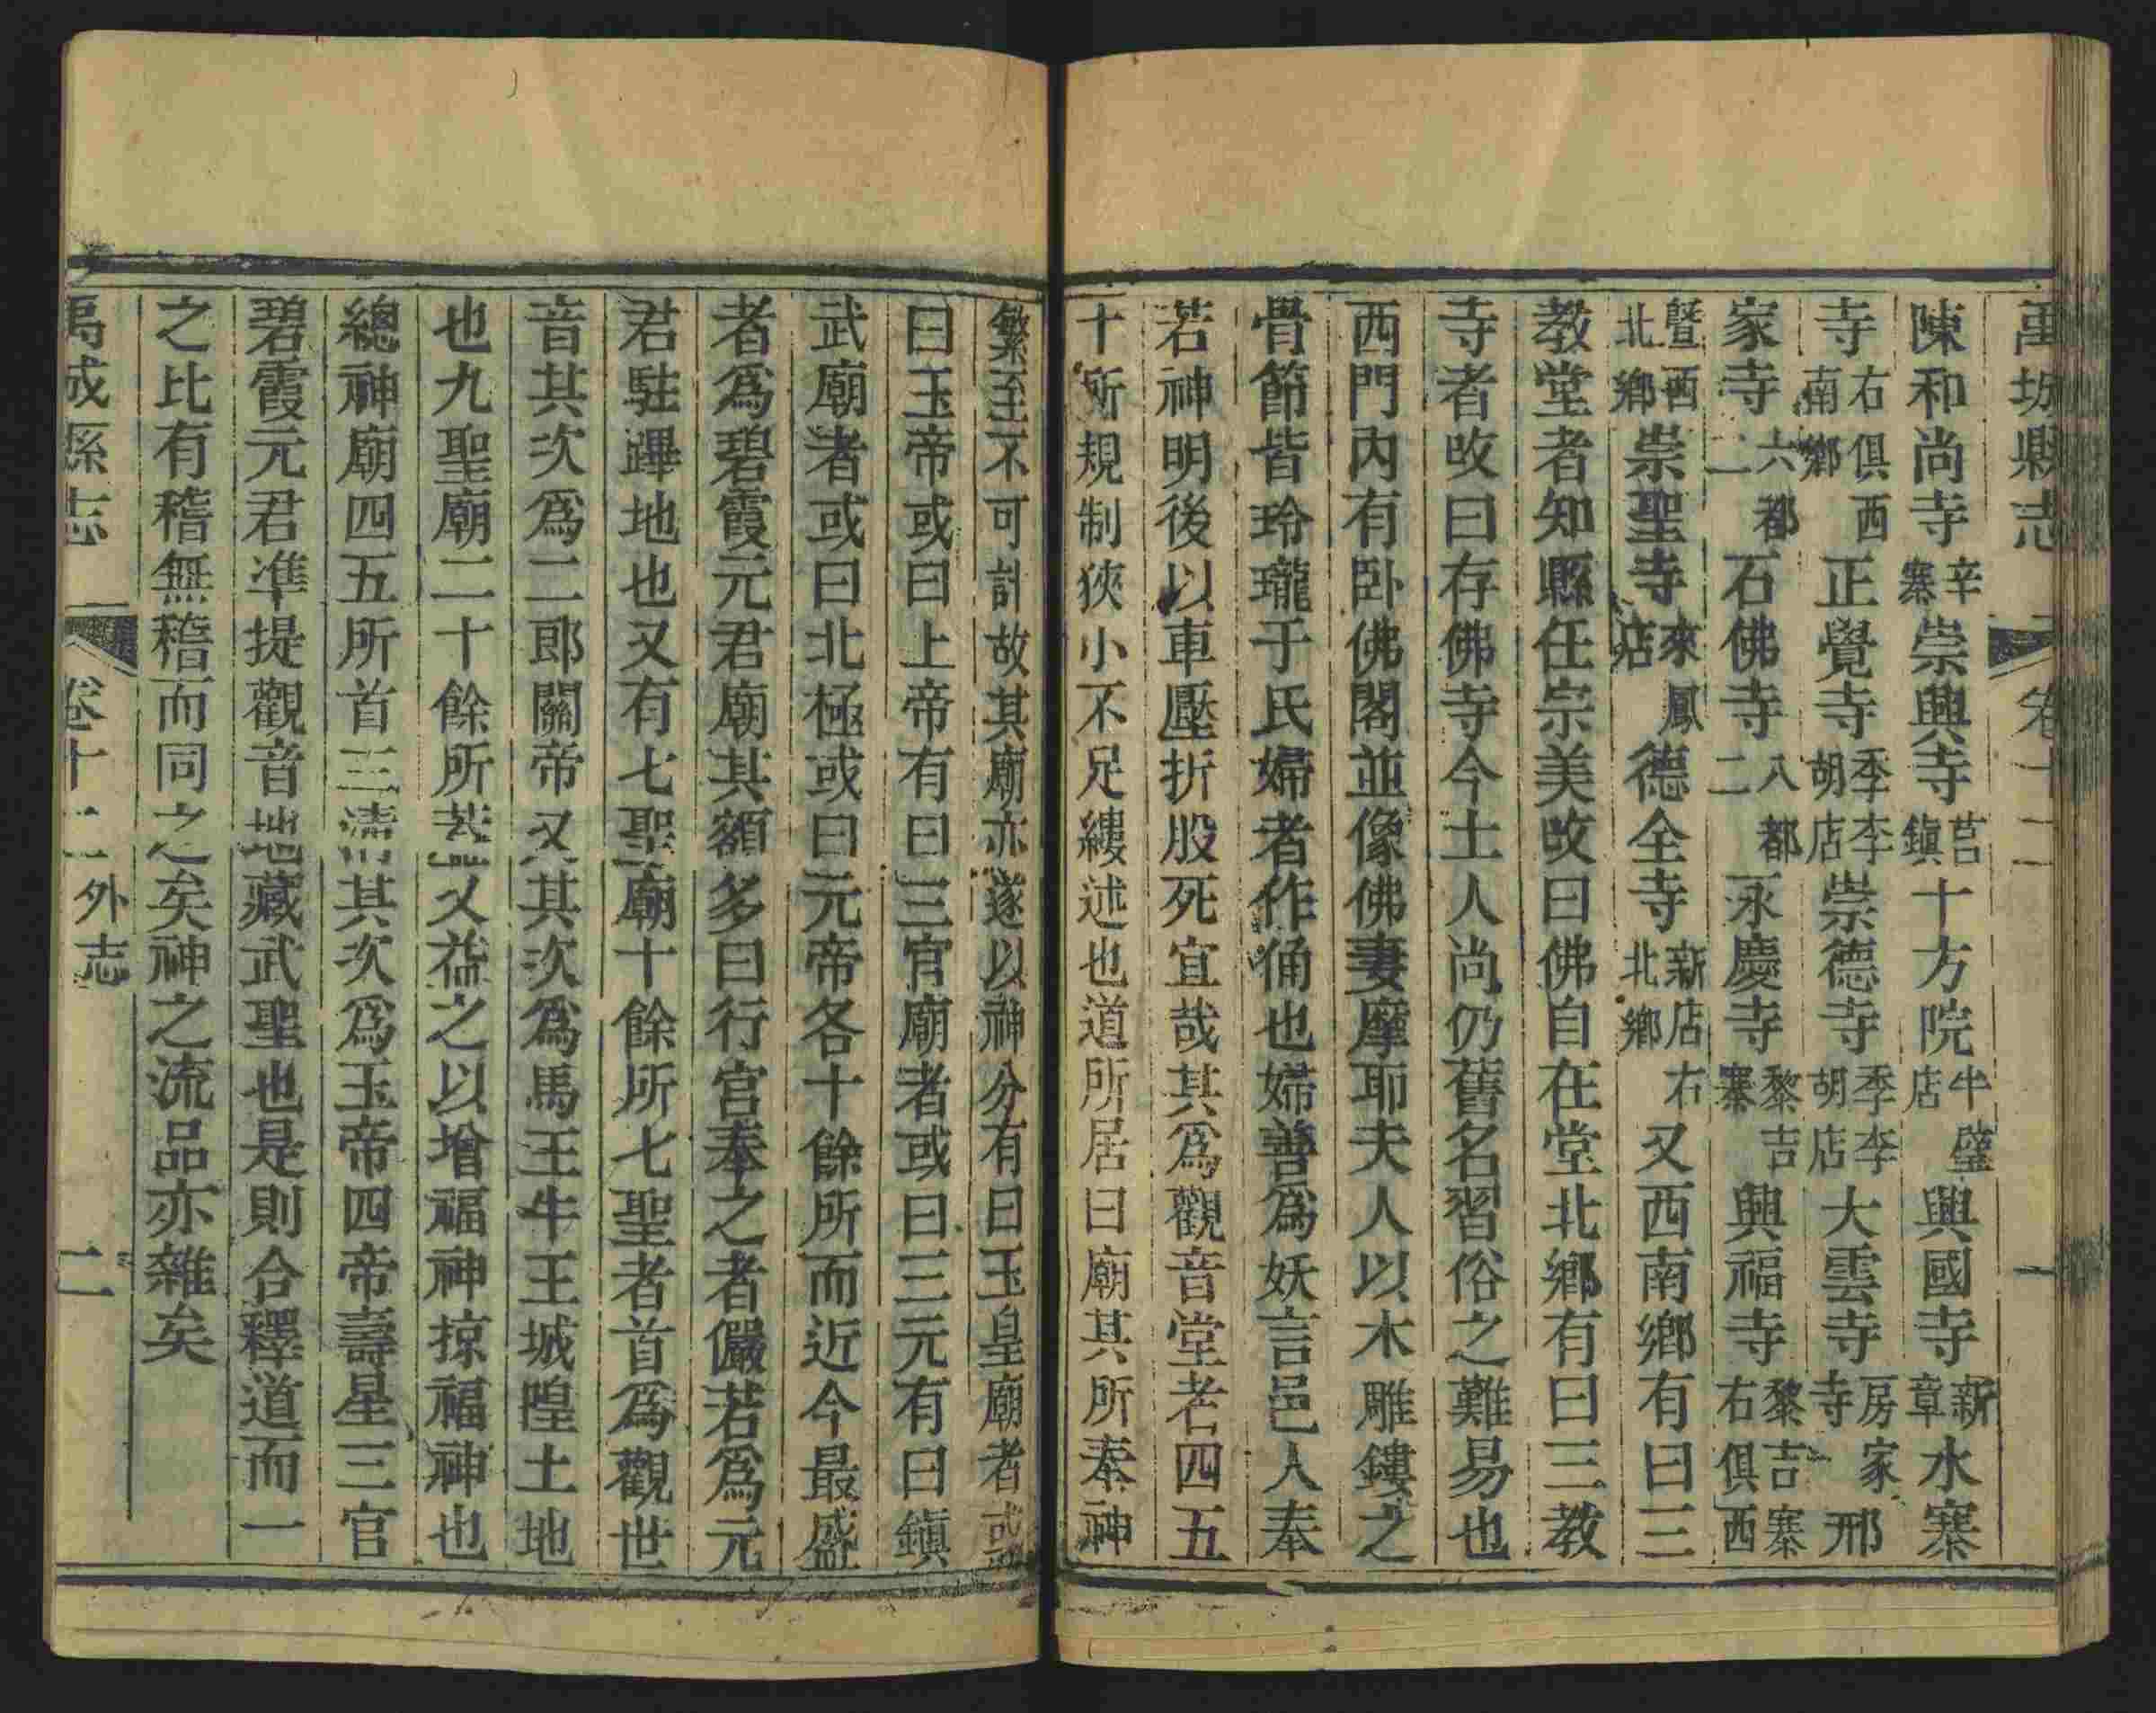 禹城縣志 卷十二 一
陳和尚寺辛寨崇興寺莒鎮十方院牛店璧興國寺新章水寨
寺右俱西南鄉正覺寺季李胡店崇德寺季李胡店大雲寺房家寺一邢
家寺六都二石佛寺八都二永慶寺黎吉寨興福寺黎吉寨右俱西
暨西北鄉崇聖寺來鳳店德全寺新店右北鄉又西南鄉有曰三
教堂者知縣任宗美改曰佛自在堂北鄉有曰三教
寺者改曰存佛寺今土人尚仍舊名習俗之難易也
西門內有卧佛閣並像佛妻摩耶夫人以木雕鏤之
骨節皆玲瓏于氏婦者作俑也婦善為妖言邑人奉
若神明後以車壓折股死宜哉其為觀音堂者四五
十所規制狹小不足縷述也道所居曰廟其所奉神
繁至不可計故其廟亦遂以神分有曰玉皇廟者或
曰玉帝或曰上帝有曰三官廟者或曰三元有曰鎮
武廟者或曰北極或曰元帝各十餘所而近今最盛
者為碧霞元君廟其額多曰行宮奉之者儼若為元
君駐蹕地也又有七聖廟十餘所七聖者首為觀世
音其次為二郎關帝又其次為馬王牛王城隍土地
也九聖廟二十餘所者又益之以增福神掠福神也
總神廟四五所首三清其次為玉帝四帝壽星三官
碧霞元君準提觀音地藏武聖也是則合釋道而一
之比有稽無稽而同之矣神之流品亦雜矣
禹城縣志 卷十二 外志 二